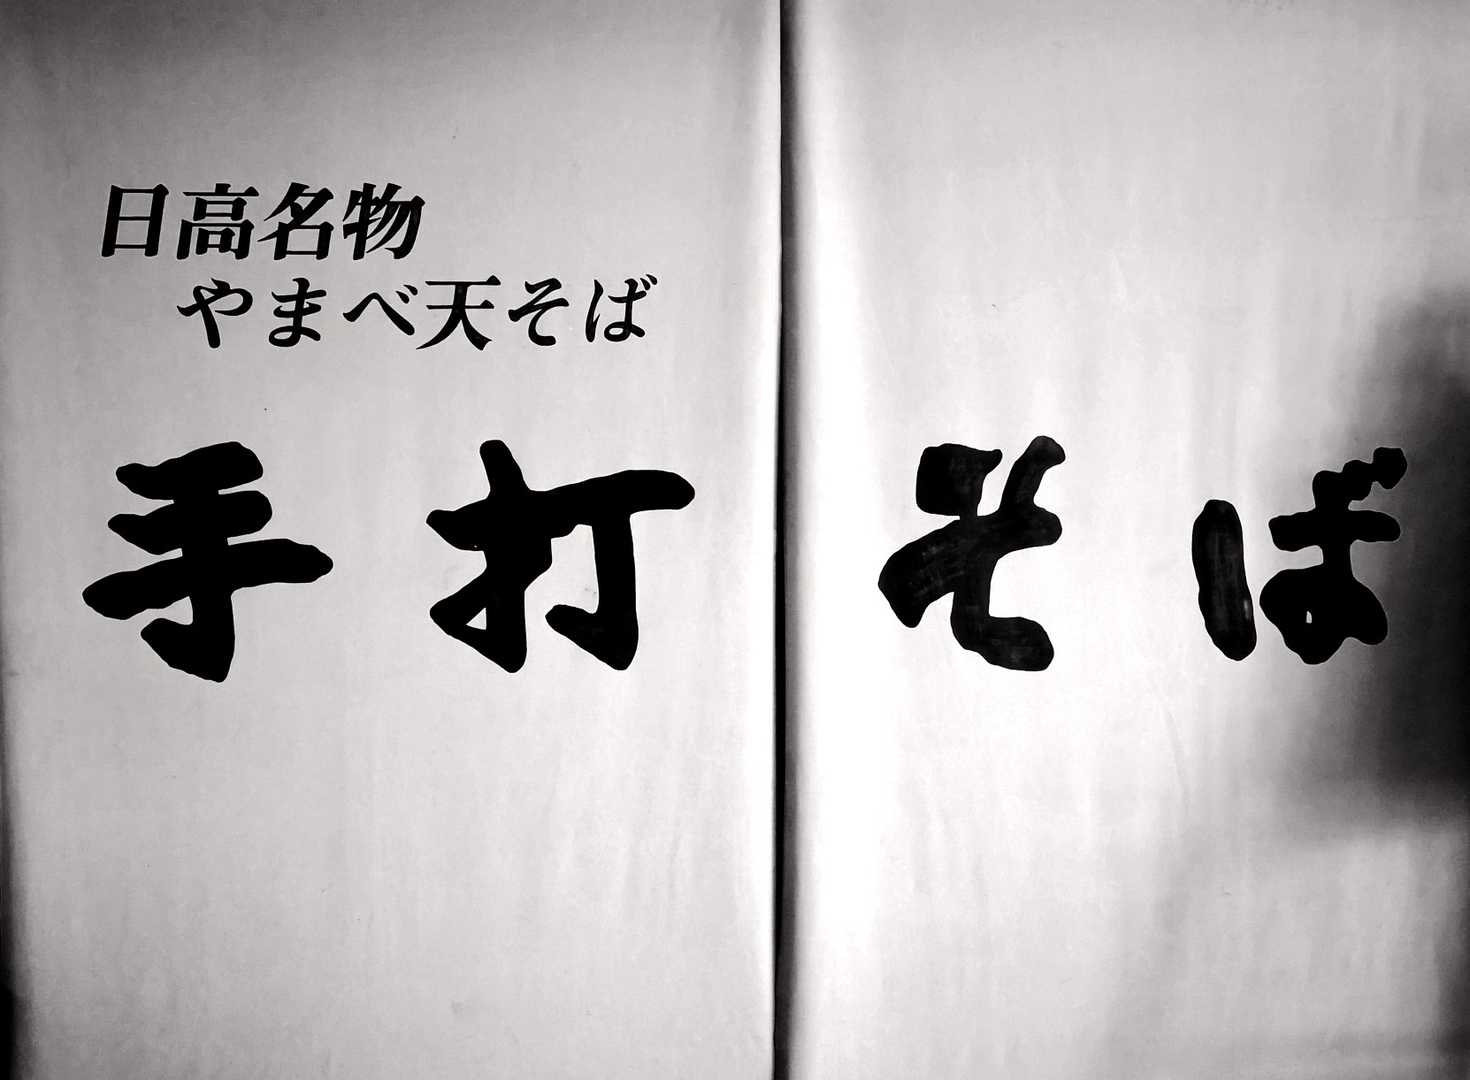 日高名物
やまべ天そば
手打そば